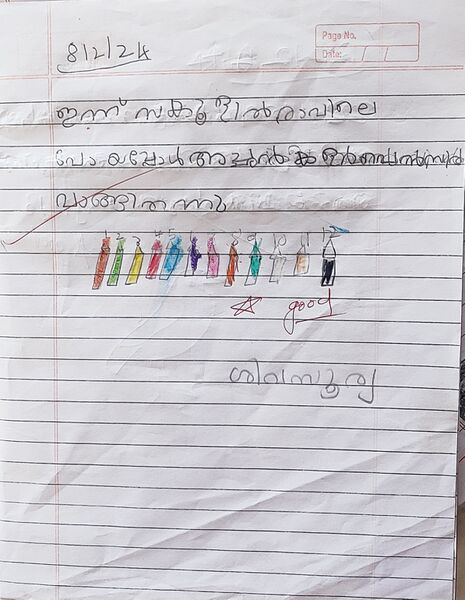 Page No.
Date: / /
8/2/24
ഇന്ന് സ്കൂളിൽ രാവിലെ
പോയപ്പോൾ അച്ഛൻ
വാങ്ങിതന്നു
1 2 3 4 5 6 7 8 9 10 11 12
good
ശിവസൂര്യ